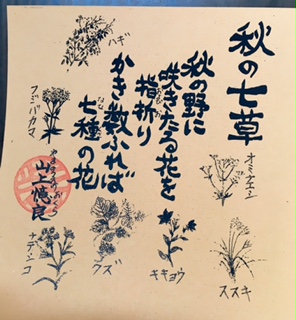 秋の七草
秋の野に
咲きたる花を
指折り
かき数ふれば
七種の花
山上憶良
ハギ
フジバカマ
オミナエシ
ススキ
キキョウ
クズ
ナデシコ